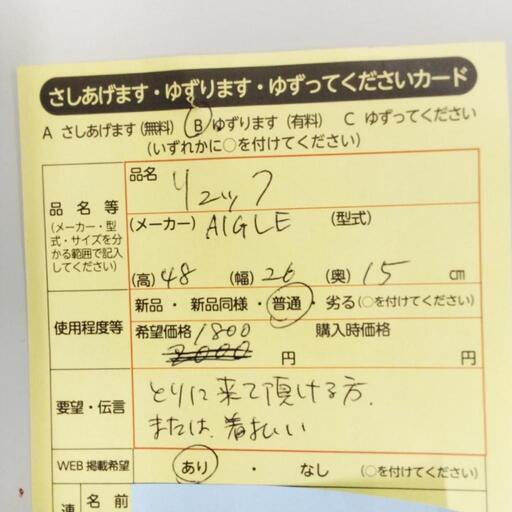 さしあげます・ゆずります・ゆずってくださいカード
A さしあげます(無料) B ゆずります(有料) C ゆずってください
(いずれかに○を付けてください)
品名 リュック
品名等
(メーカー・型
式・サイズを分
かる範囲で記入
してください)
(メーカー) AIGLE (型式)
(高) 48 (幅) 26 (奥) 15 cm
使用程度等
新品・新品同様・普通・劣る(○を付けてください)
希望価格 1800 購入時価格
2000 円 円
要望・伝言
とりに来て頂ける方、
または、着払い
WEB掲載希望 あり ・ なし (○を付けてください)
連 名前